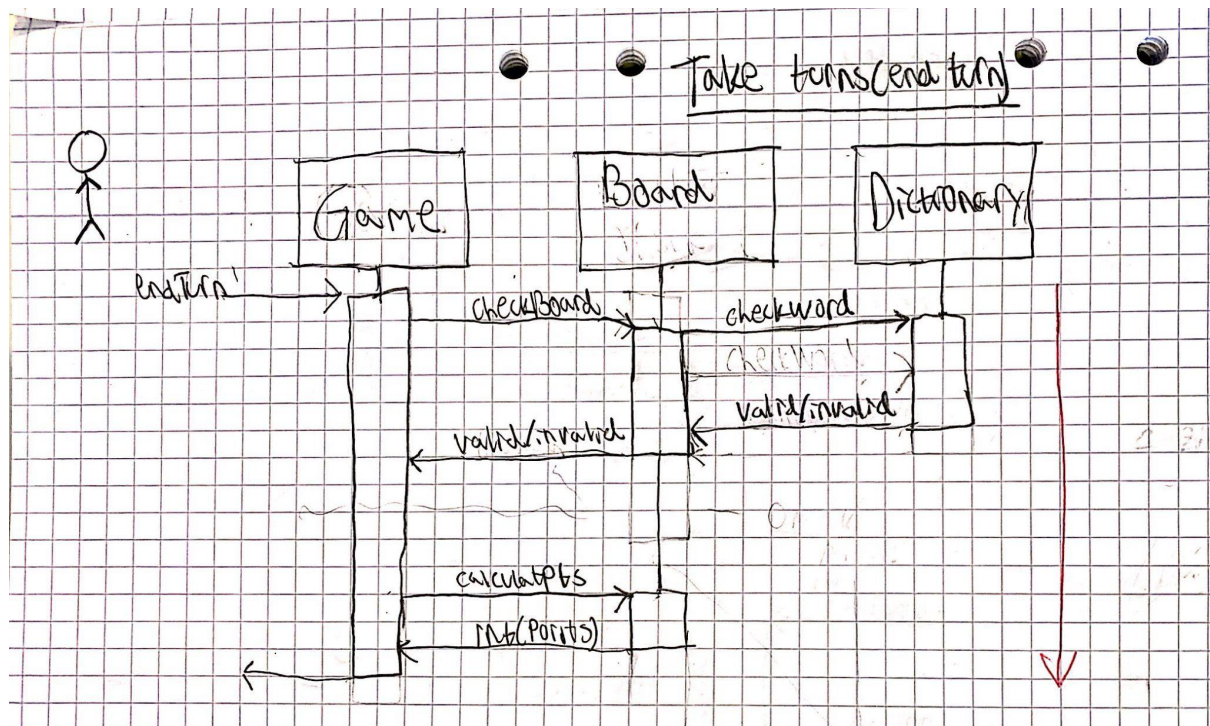 Take turns(end turn)
Game
Board
Dictionary
endTurn
checkBoard
checkword
checkWord
valid/invalid
valid/invalid
calculatPts
int(Points)